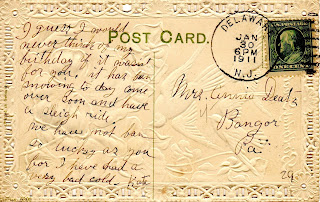 I guess I would
never think of my
birthday if it wasent
for you. it has ben
snowing to day come
over soon and have
a sleigh ride.
we have not ban
so lucky as you
for I have had a
very bad cold. Kate
POST CARD.
DELAWARE
JAN
30
6 PM
1911
N.J.
Mrs. Annie Deats
Bangor
Pa.